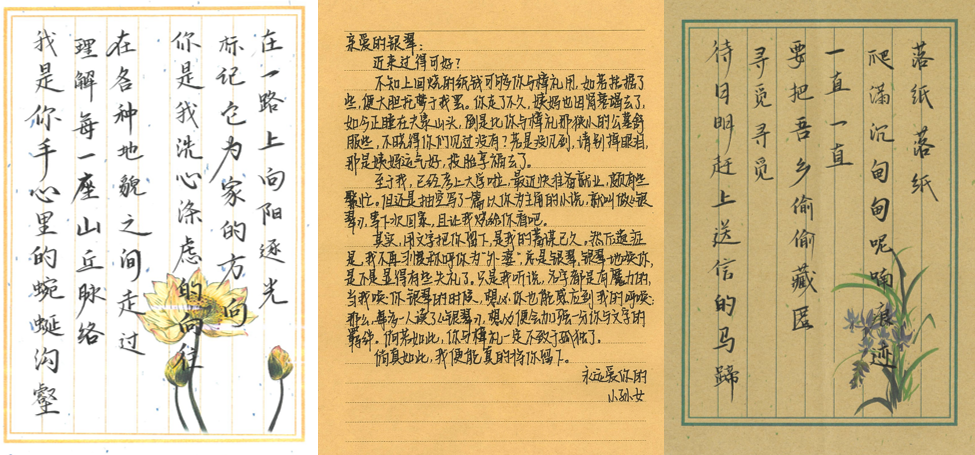 在一路上向阳逐光
标记它为家的方向
你是我洗心涤虑的向往
在各种地貌之间走过
理解每一座山丘脉络
我是你手心里的蜿蜒沟壑
亲爱的银翠：
近来过得可好？
不知上回烧的纸钱可够你与樟礼用，如若拮据了
些，便大胆托梦于我罢。你走了不久，姨妈也因肾
如今正睡在大象山头，倒是比你与樟礼那狭小的公墓舒
服些，不晓得你们见过没有？若是没见到，请别掉眼泪，
那是姨妈运气好，投胎享福去了。
至于我，已经考上大学啦，最近快准备就业，颇有些
繁忙。但还是抽空写了篇以你为主角的小说，就叫做《银
翠》，等下次回来，且让我烧给你看吧。
其实，用文字把你留下，是我的蓄谋已久。然后
是，我不再习惯称呼你为“外婆”，老是银翠、银翠地唤你，
是不是显得有些失礼了。只是我听说，名字都是有魔力的，
当我唤你银翠的时候，想必你也能感应到我的呼唤；
那么，每多一人读了《银翠》，想必便会加强一分你与文字的
羁绊。倘若如此，你与樟礼一定不致于孤独了。
倘真如此，我便能真的将你留下。
永远爱你的
小孙女
落纸 落纸
爬满沉甸甸呢喃痕迹
一直一直
要把吾乡偷偷藏匿
寻觅寻觅
待日明赶上送信的马蹄